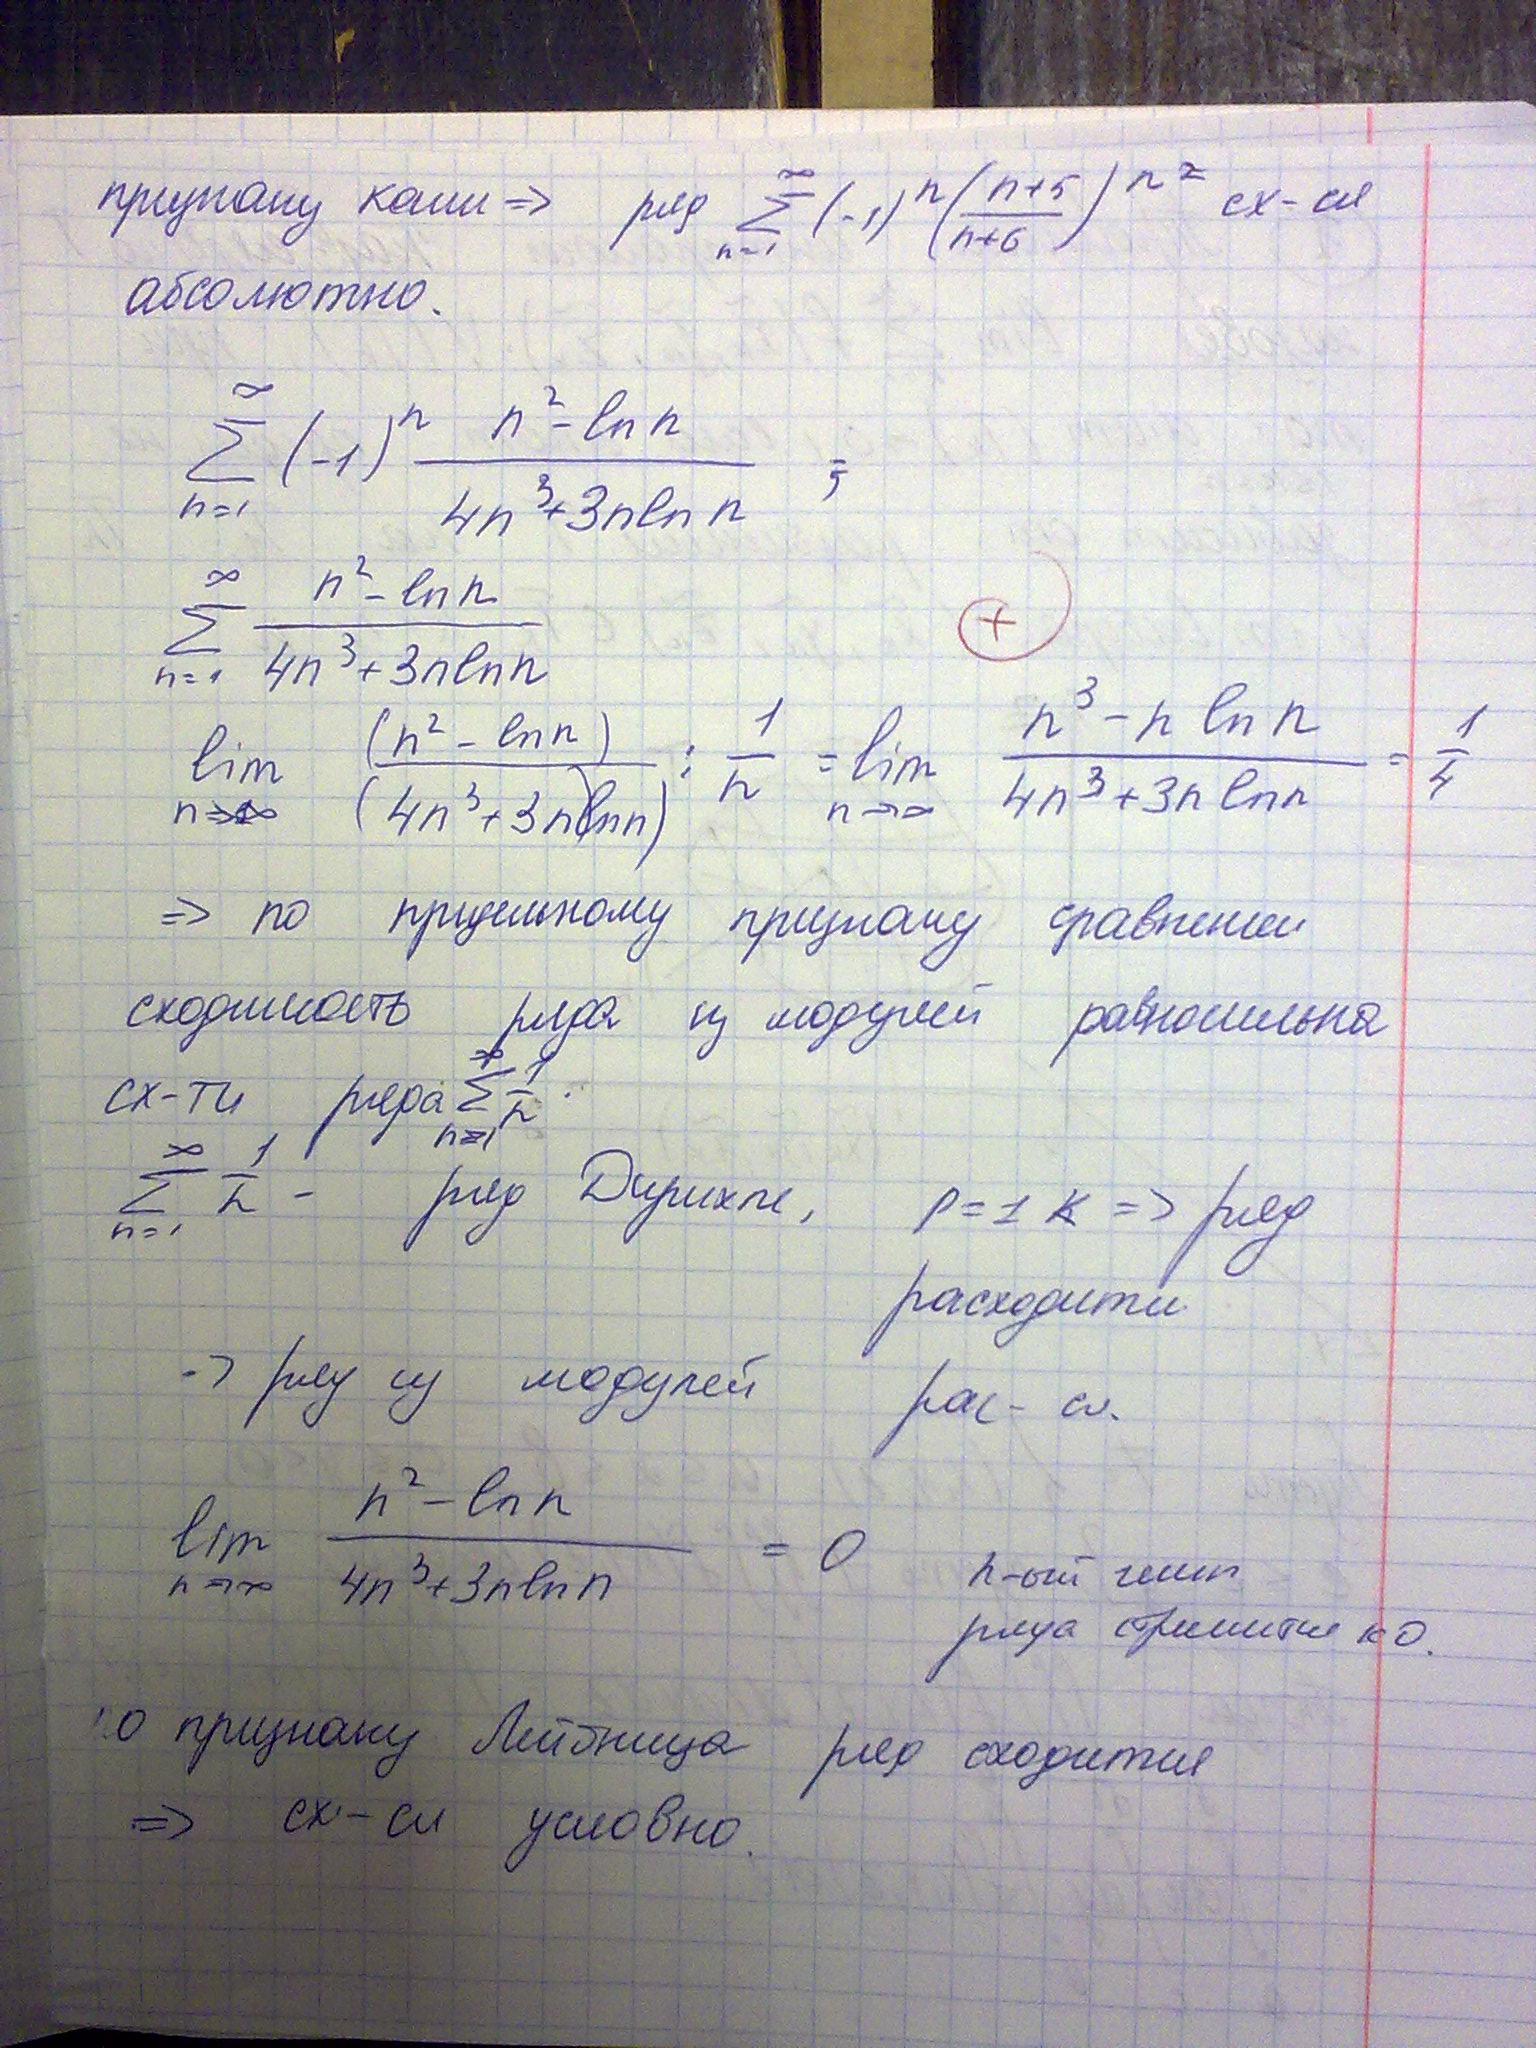 признаку Коши => ряд ∑_{n=1}^{∞} (-1)^n ((n+5)/(n+6))^{n^2} сх-ся
абсолютно.
∑_{n=1}^{∞} (-1)^n (n^2 - ln n)/(4n^3 + 3n ln n) ;
∑_{n=1}^{∞} (n^2 - ln n)/(4n^3 + 3n ln n)
+
lim_{n→∞} (n^2 - ln n)/(4n^3 + 3n ln n) : 1/n = lim_{n→∞} (n^3 - n ln n)/(4n^3 + 3n ln n) = 1/4
=> по предельному признаку сравнения
сходимость ряда из модулей равносильна
сх-ти ряда ∑_{n=1}^{∞} 1/n .
∑_{n=1}^{∞} 1/n - ряд Дирихле, p=1 => ряд
расходится
-> ряд из модулей рас-ся.
lim_{n→∞} (n^2 - ln n)/(4n^3 + 3n ln n) = 0 n-ый член
ряда стремится к 0.
о признаку Лейбница ряд сходится
=> сх-ся условно.